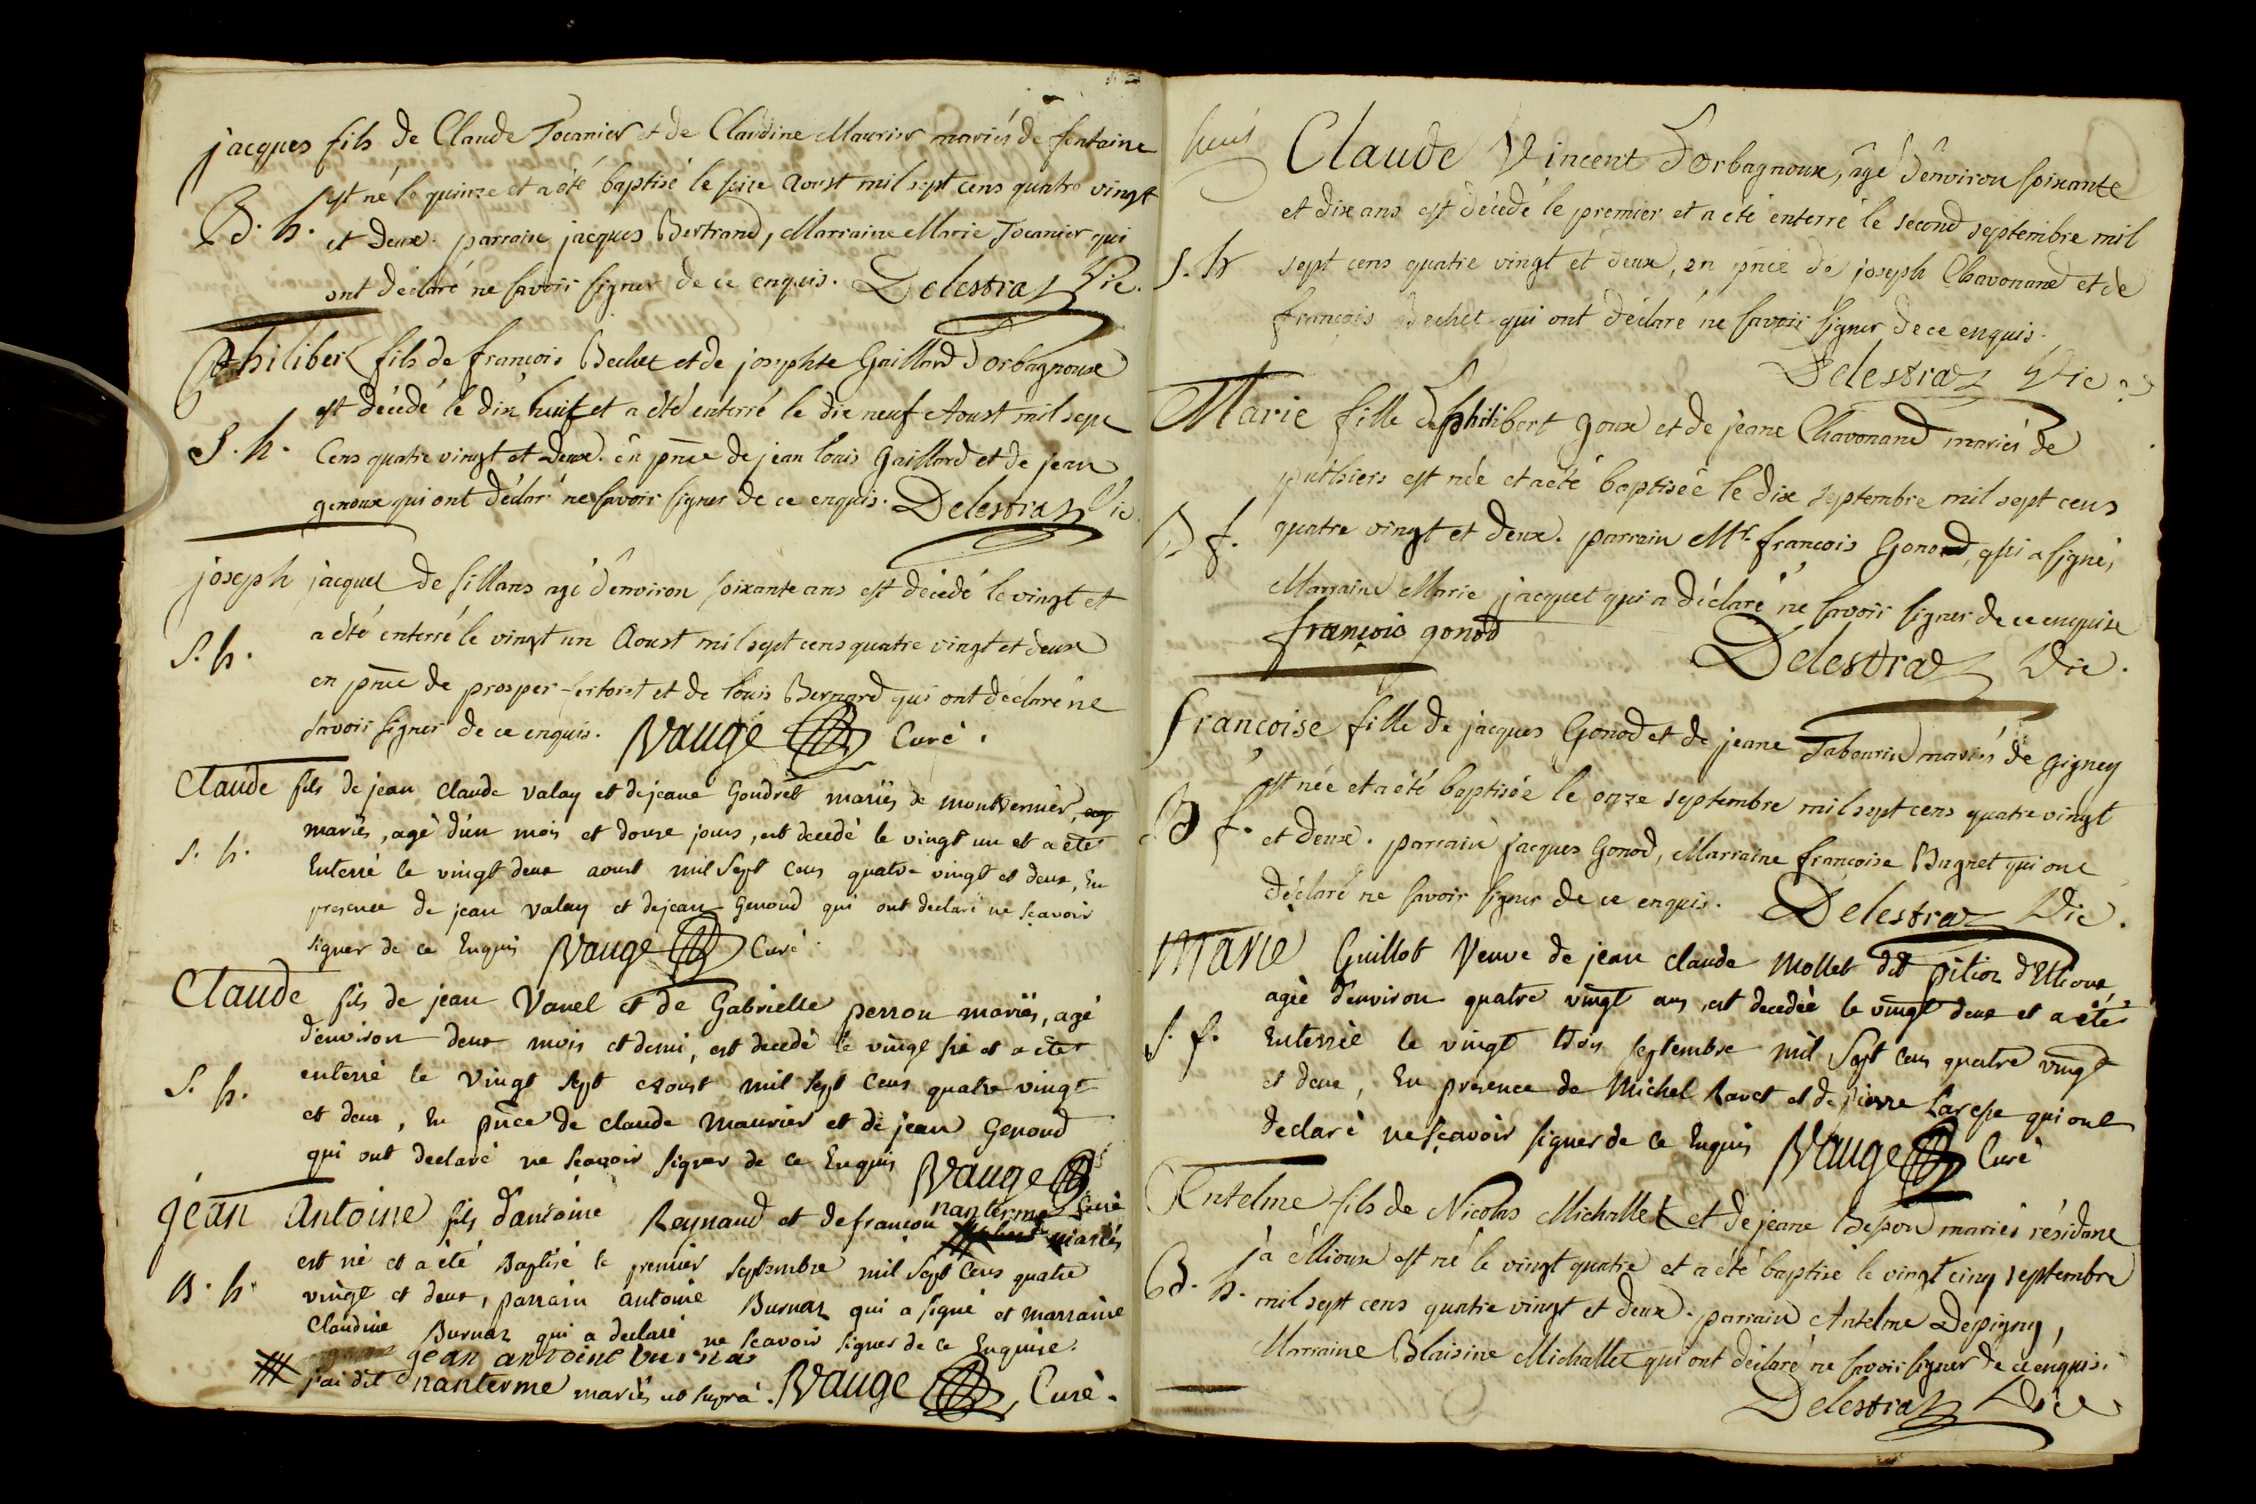 jacques fils de Claude Tocanier et de Claudine Maurier mariés de fontaine
est né le quinze et a été baptisé le seize Aoust mil sept cens quatre vingt
B. h. et deux. parrain jacques Bertrand, Marraine Marie Tocanier qui
ont déclaré ne savoir signer de ce enquis. Delestraz Vic.
Philibert fils de françois Bechet et de josephte Gaillard d'orbagnoux
est décédé le dix huit et a été enterré le dix neuf Aoust mil sept
S. h. Cens quatre vingt et deux. en pnce de jean louis Gaillard et de jean
genoux qui ont déclaré ne savoir signer de ce enquis. Delestraz Vic.
joseph jacquet de sillans agé d'environ soixante ans est décédé le vingt et
S. h. a été enterré le vingt un Aoust mil sept cens quatre vingt et deux
en pnce de prosper fertoret et de louis Bernard qui ont déclaré ne
savoir signer de ce enquis. Vauge Curé.
Claude fils de jean Claude valay et de jeane Goudret mariés de montvernier,
mariés, agé d'un mois et douze jours, est decedé le vingt un et a été
S. h. Enterré le vingt deux aoust mil Sept Cens quatre vingt et deux, En
presence de jean valay et de jean Genoud qui ont declaré ne sçavoir
signer de ce Enquis Vauge Curé
Claude fils de jean Vanel et de Gabrielle perrou mariés, agé
d'environ deux mois et demi, est decedé le vingt six et a été
S. h. enterré le Vingt sept aoust mil sept Cens quatre vingt
et deux, En pnce de Claude Maurier et de jean Genoud
qui ont declaré ne scavoir signer de ce Enquis Vauge
Curé
jean Antoine fils d'antoine Reynaud et de françon nanterme mariés
est né et a été Baptisé le premier Septembre mil Sept Cens quatre
B. h. vingt et deux, parrain antoine Burnaz qui a signé et marraine
Claudine Burnaz qui a declaré ne scavoir signer de ce Enquise.
jean antoine burnas
j'ai dit nanterme mariés ut supra. Vauge Curé.
Claude Vincent d'orbagnoux, âgé d'environ soixante
et dix ans est décédé le premier et a été enterré le second septembre mil
S. h sept cens quatre vingt et deux, en pnce de joseph Chavonand et de
françois Bechet qui ont déclaré ne savoir signer de ce enquis.
Delestraz Vic.
Marie fille de philibert goux et de jeane Chavonand mariés de
puthiers est née et a été baptisée le dix septembre mil sept cens
B f. quatre vingt et deux. parrain Mr. françois Gonod, qui a signé,
Marraine Marie jacquet qui a déclaré ne savoir signer de ce enquise
françois gonod Delestraz Vic.
françoise fille de jacques Gonod et de jeane Tabouret mariés de gigney
est née et a été baptisée le onze septembre mil sept cens quatre vingt
B f. et deux. parrain jacques Gonod, Marraine françoise Bugnet qui ont
déclaré ne savoir signer de ce enquis. Delestraz Vic.
Marie Guillot Veuve de jean claude Mollet dit pition
agée d'environ quatre vingt ans, est decedée le vingt deux et a été
S. f. Enterrée le vingt trois septembre mil Sept Cens quatre vingt
et deux, En presence de Michel Ravet et de pierre qui ont
declaré ne sçavoir signer de ce Enquis Vauge Curé
Antelme fils de Nicolas Michallet et de jeane Besson mariés résidant
à est né le vingt quatre et a été baptisé le vingt cinq septembre
B. h. mil sept cens quatre vingt et deux. parrain Antelme Depigny,
Marraine Blaisine Michallet qui ont déclaré ne savoir signer de ce enquis.
Delestraz Vic